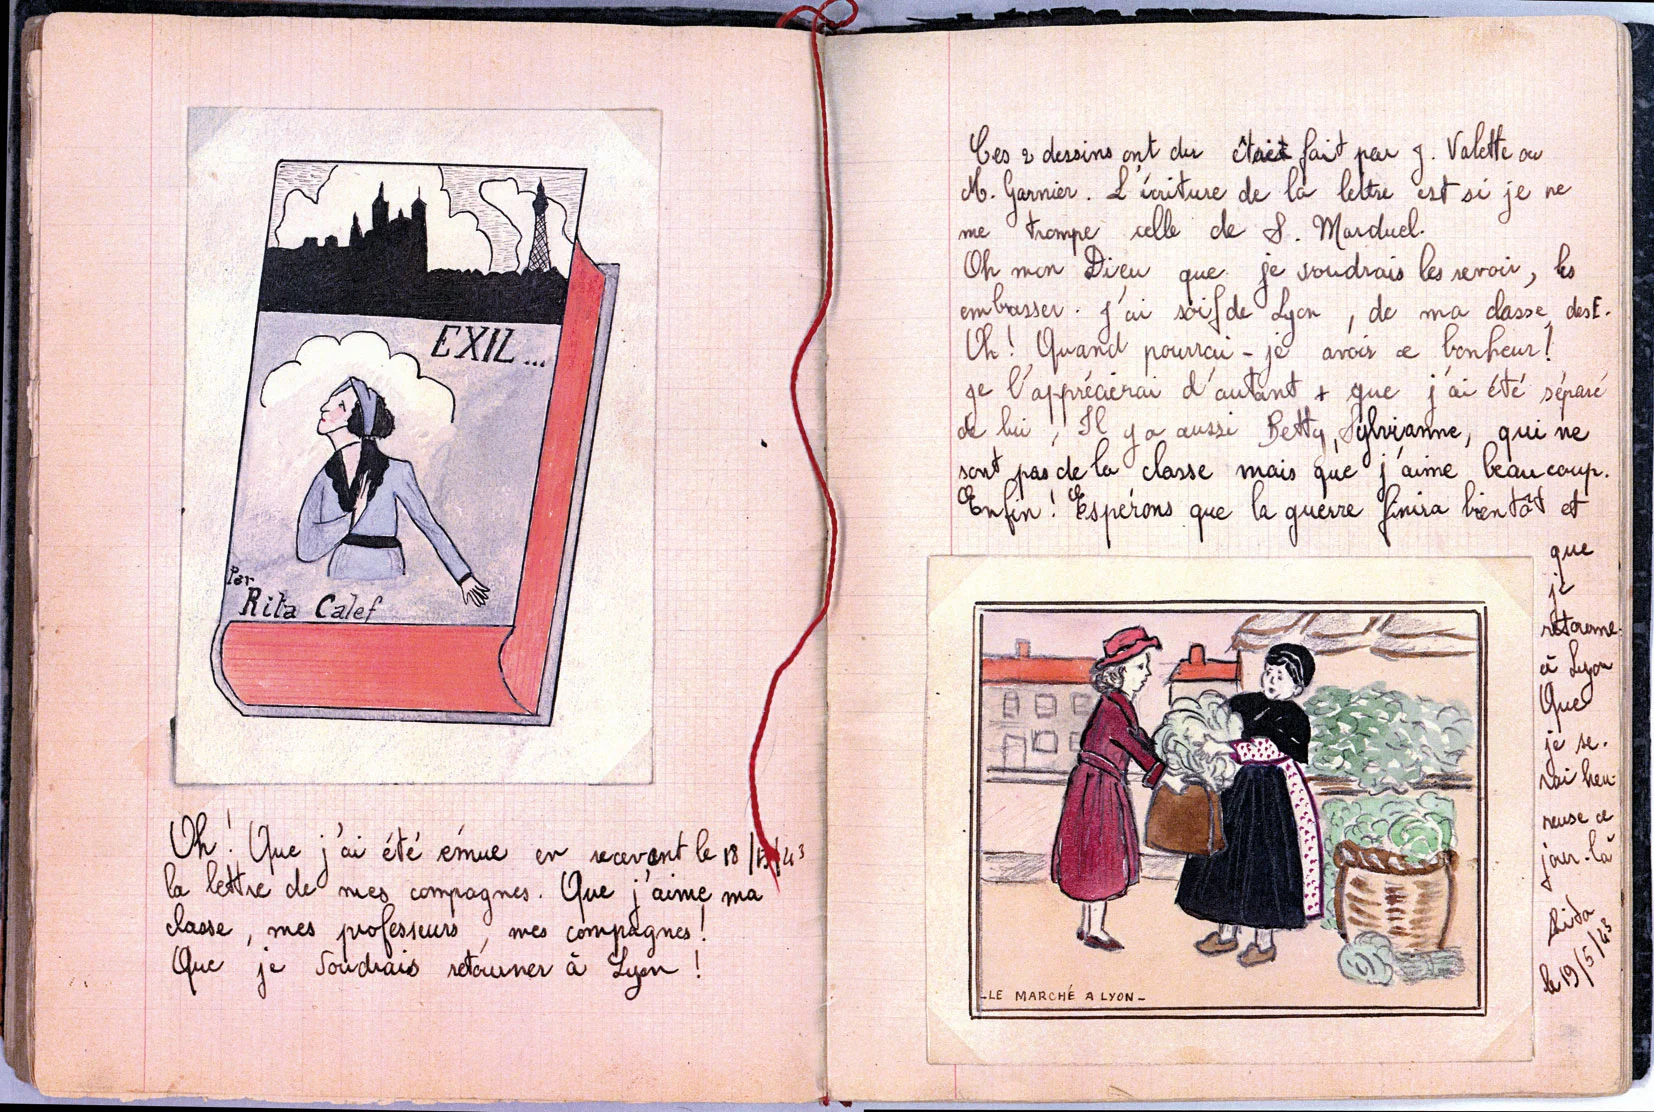 EXIL...
Par
Rita Calef
Oh! Que j'ai été émue en recevant le 18/5/43
la lettre de mes compagnes. Que j'aime ma
classe, mes professeurs, mes compagnes!
Que je voudrais retourner à Lyon !
Ces 2 dessins ont du être fait par J. Valette ou
M. Garnier. L'écriture de la lettre est si je ne
me trompe celle de S. Marduel.
Oh mon Dieu que je voudrais les revoir, les
embrasser. J'ai soif de Lyon, de ma classe, des E.
Oh! Quand pourrai-je avoir ce bonheur!
Je l'apprécierai d'autant + que j'ai été séparé
de lui! Il y a aussi Betty, Sylvianne, qui ne
sont pas de la classe mais que j'aime beaucoup.
Enfin! Espérons que la guerre finira bientôt et
que
je
retourne-
à Lyon
Que
je se-
rai heu-
reuse ce
jour-là
Rita
le 19/5/43
-LE MARCHÉ A LYON-